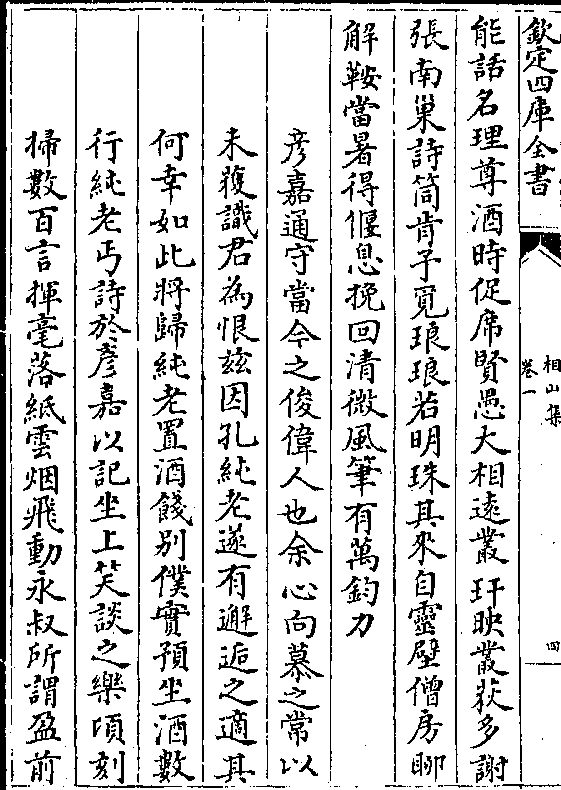 欽定四庫全書
相山集
卷一
四
能話名理尊酒時促席賢愚大相遠叢玕映叢荻多謝
張南巢詩筒肯予寛琅琅若明珠其來自靈壁僧房聊
解鞍當暑得偃息挽回清微風筆有萬鈞力
彦嘉通守當今之俊偉人也余心向慕之常以
未獲識君為恨兹因孔純老遂有邂逅之適其
何幸如此將歸純老置酒餞別僕實預坐酒數
行純老丐詩於彦嘉以記坐上笑談之樂頃刻
掃數百言揮毫落紙雲烟飛動永叔所謂盈前